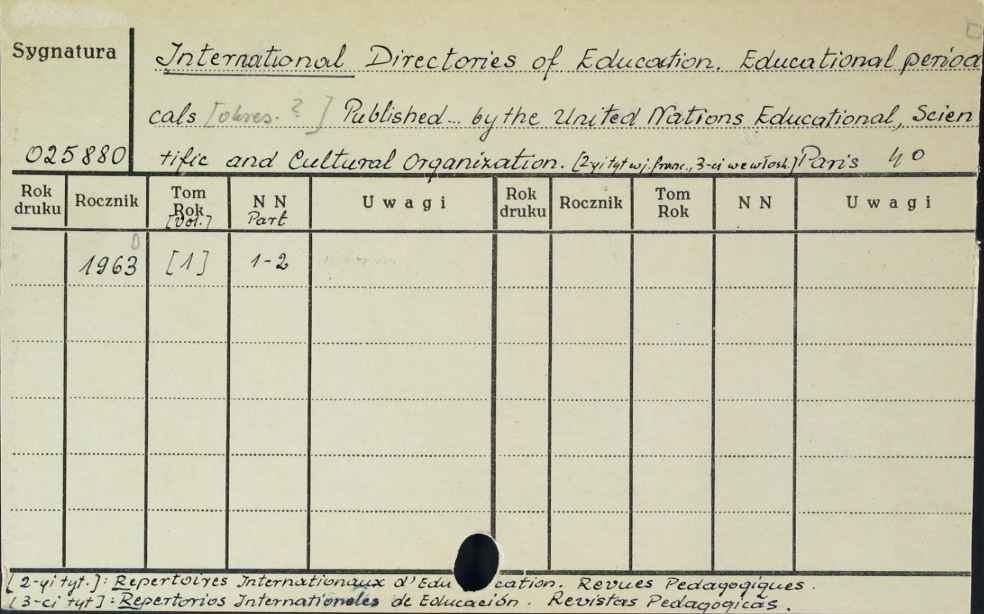 Sygnatura
International Directories of Education. Educational period
cals [okres. ?] Published... by the United Nations Educational, Scien
025880 tific and Cultural Organization. [2-yi tyt w j. franc., 3-ci we włosk.] Paris 4°
Rok druku Rocznik Tom Rok [Vol.] N N Part Uwagi Rok druku Rocznik Tom Rok N N Uwagi
1963 [1] 1-2
[2-yi tyt.]: Repertoires Internationaux d'Education. Revues Pedagogiques.
[3-ci tyt]: Repertorios Internationeles de Educación. Revistas Pedagogicas.